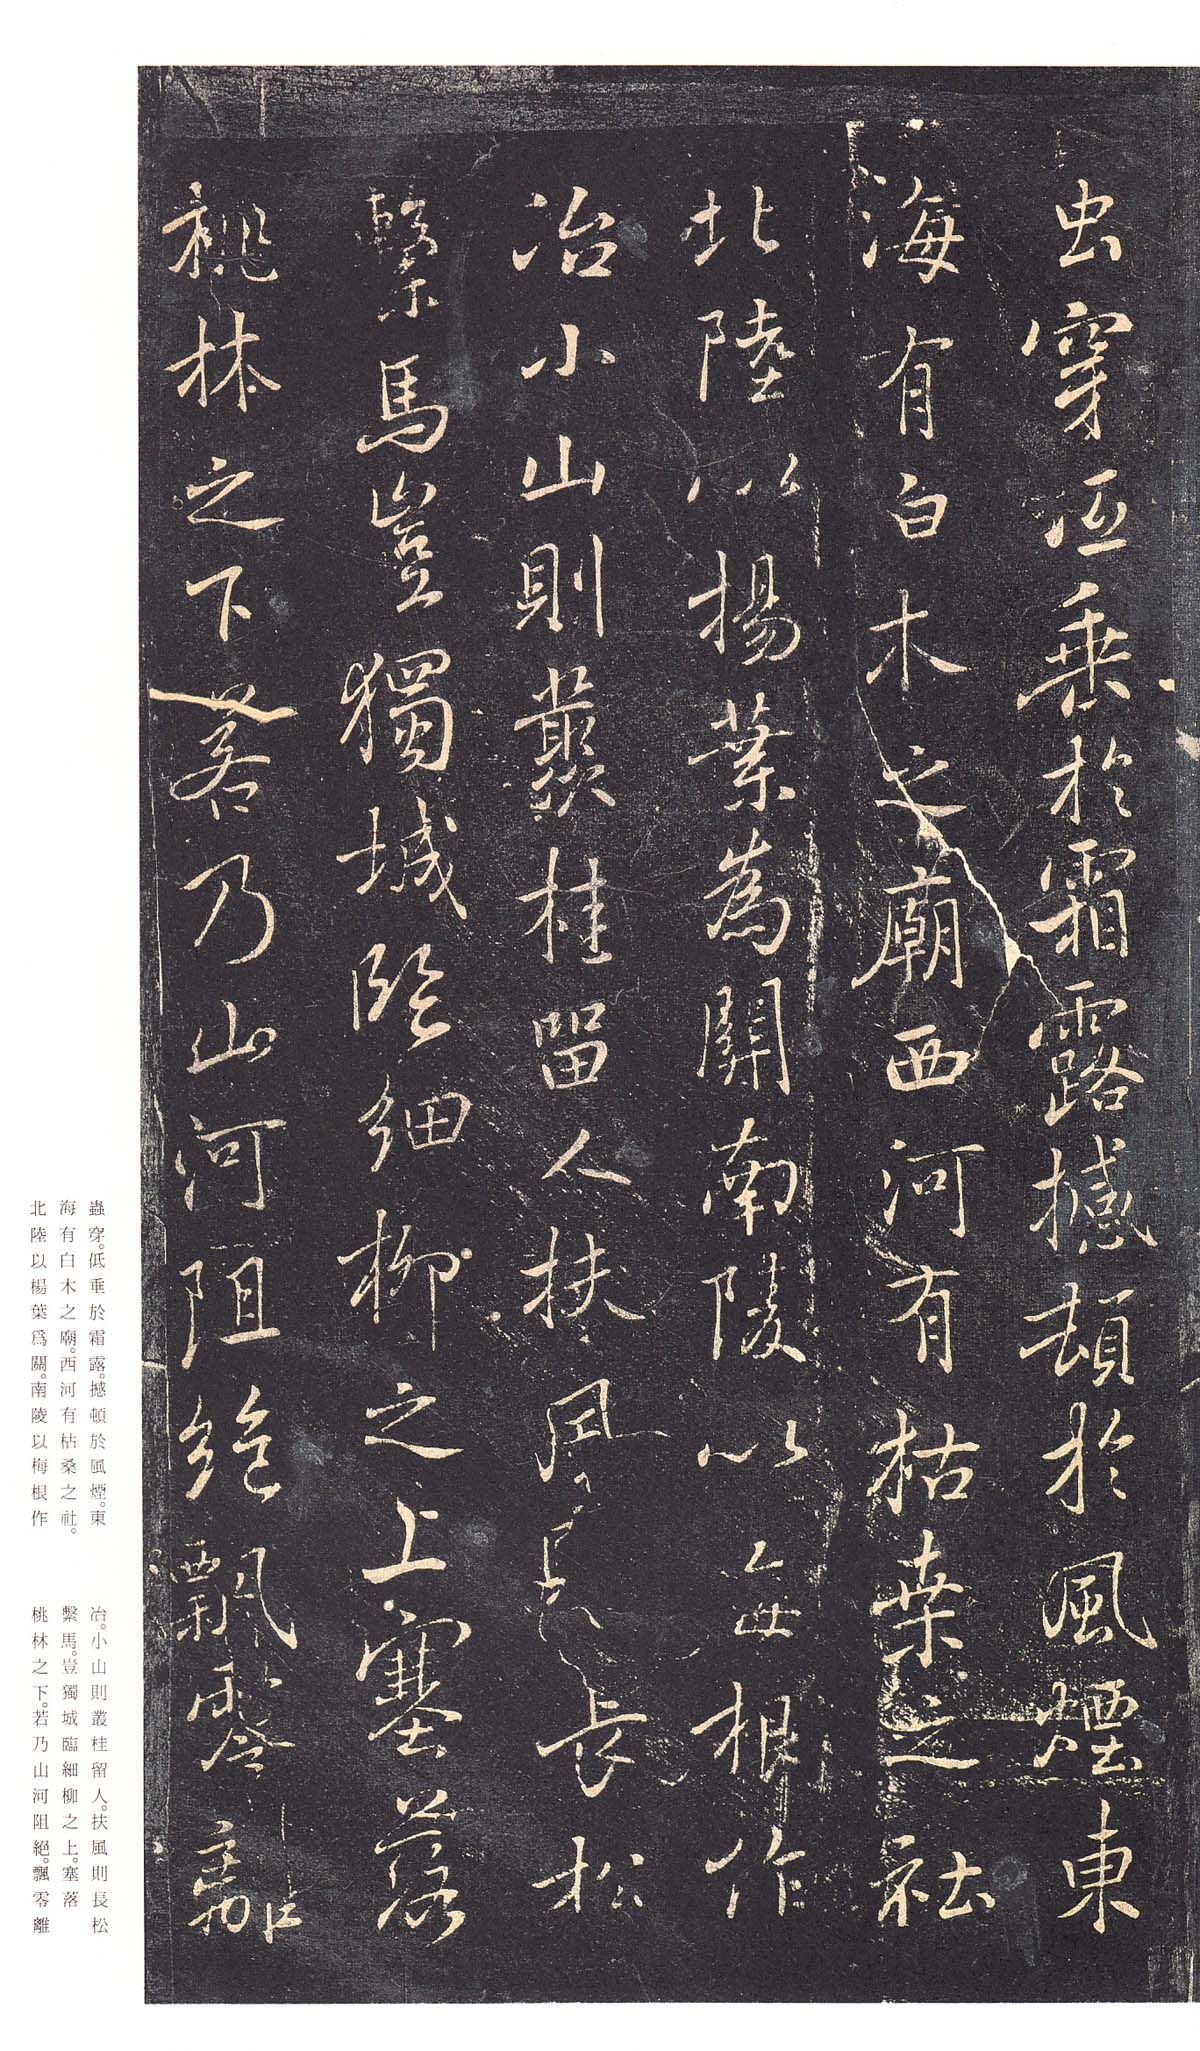 虫穿伍垂於霜露撼頓於風煙東
海有白木之廟西河有枯桒之社
北陸以揚葉為關南陵以每根作
冶小山則叢桂留人扶風長松
繫馬豈獨城臨細柳之上塞落
桃林之下若乃山河阻絶飄零離
蟲穿。低垂於霜露。撼頓於風煙。東
海有白木之廟。西河有枯桑之社。
北陸以楊葉爲關。南陵以梅根作
冶。小山則叢桂留人。扶風則長松
繫馬。豈獨城臨細柳之上。塞落
桃林之下。若乃山河阻絕。飄零離